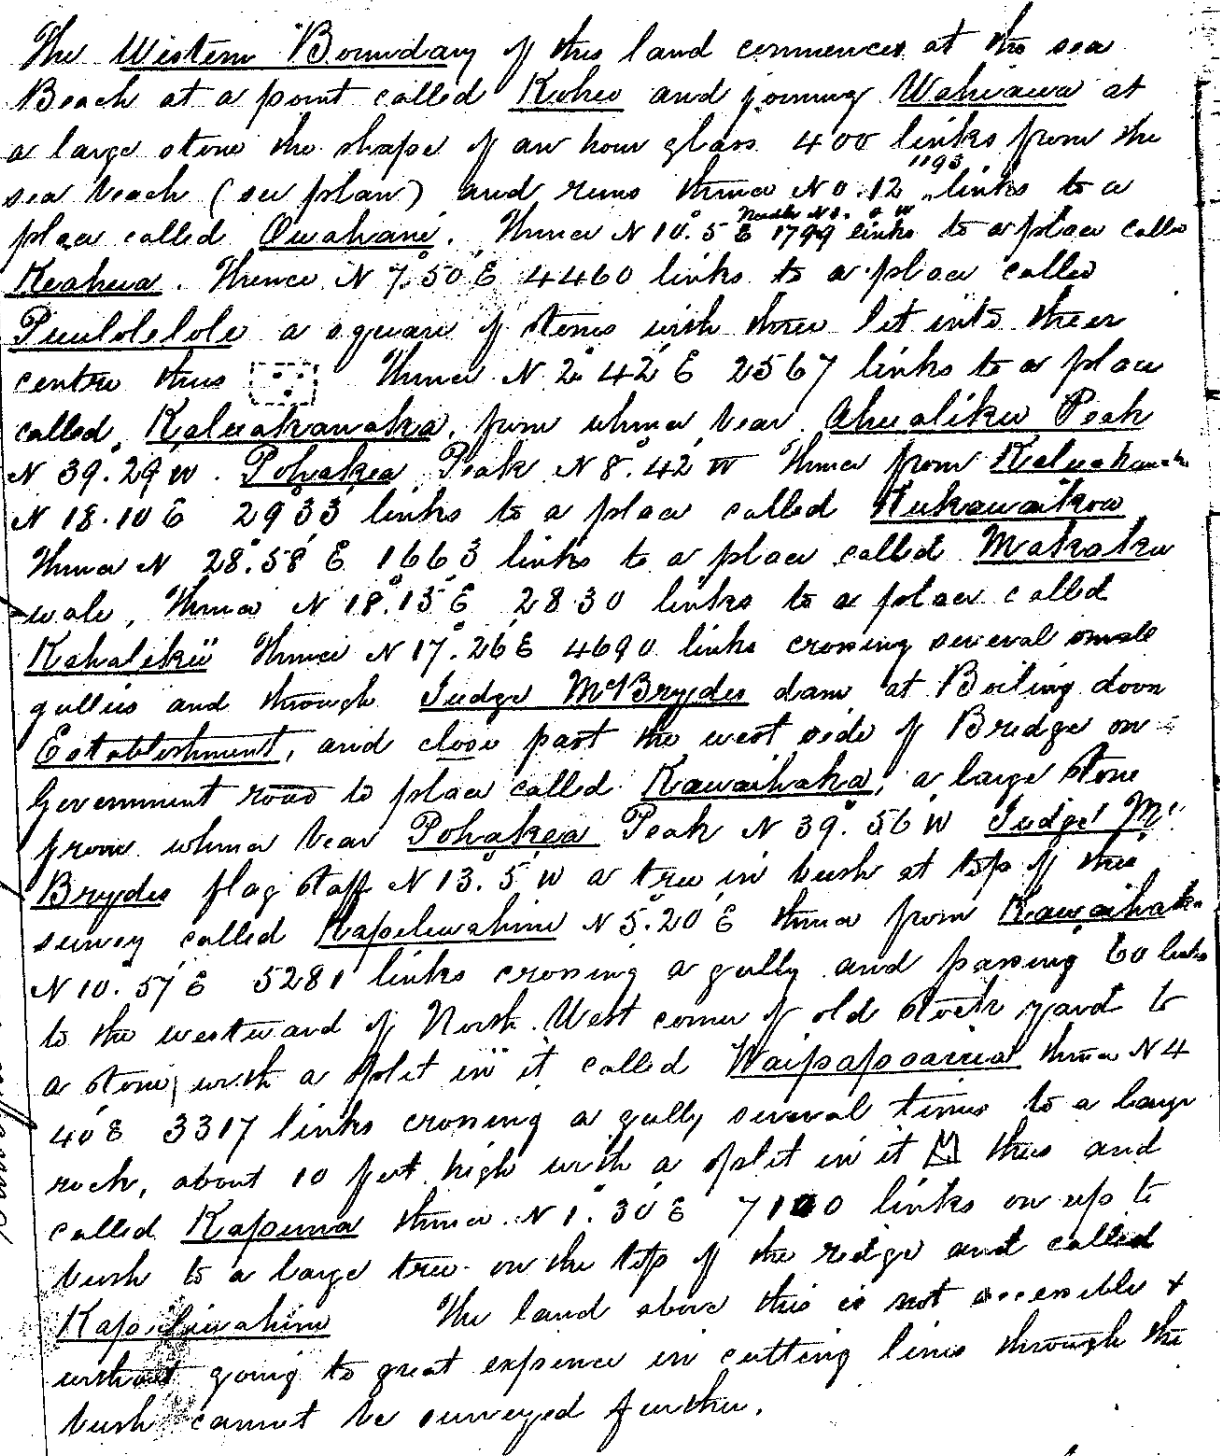 The Western Boundary of this land commences at the sea
Beach at a point called Koheo and joining Wahiawa at
a large stone the shape of an hour glass 400 links from the
sea beach (see plan) and runs thence No. 12 1193 links to a
place called Ouahani. Thence N 10°. 5 E 1799 links to a place called
Keahua. Thence N 7°. 50' E 4460 links to a place called
Puulolelole a square of stones with three let into their
centre thus Thence N 2° 42' E 2567 links to a place
called Kaluakanaka, from whence bear Ahualiku Peak
N 39°. 29' W. Pohakea Peak N 8°. 42' W Thence from
N 18°. 10' E 2933 links to a place called Kukawaikoa
Thence N 28°. 58' E 1663 links to a place called Makaku
wale, Thence N 18°. 15' E 2830 links to a place called
Kahalikii Thence N 17°. 26' E 4690 links crossing several small
gullies and through Judge McBrydes dam at Boiling down
Establishment, and close past the west side of Bridge on
Government road to place called Kawaihaka, a large stone
from whence bear Pohakea Peak N 39°. 56' W Judge Mc
Brydes flag staff N 13°. 5' W a tree in bush at top of this
survey called Kapeliwahine N 5°. 20' E thence from Kawaihaka
N 10°. 57' E 5281 links crossing a gully and passing 60 links
to the westward of North West corner of old stock yard to
a stone with a split in it called Waipapaaiia thence N 4
40' E 3317 links crossing a gully several times to a large
rock, about 10 feet high with a split in it thus and
called Kapuna thence N 1°. 30' E 7100 links on up to
bush to a large tree on the top of the ridge and called
Kapeliwahine The land above this is not accessible &
without going to great expence in cutting lines through the
bush cannot be surveyed further.